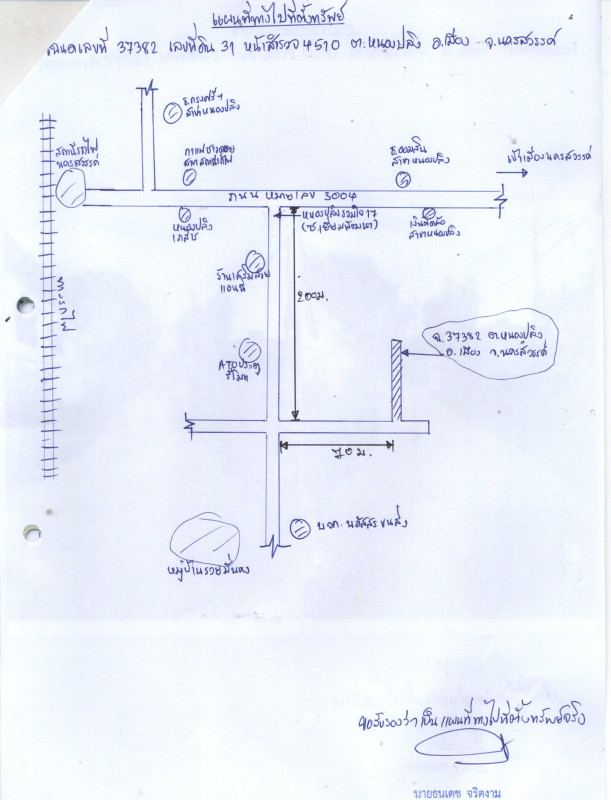 แผนที่ทางไปที่ตั้งทรัพย์
โฉนดเลขที่ 37382 เลขที่ดิน 31 หน้าสำรวจ 4510 ต.หนองปลิง อ.เมือง จ.นครสวรรค์
ธ.กรุงศรีฯ
สาขาหนองปลิง
สถานีรถไฟ
นครสวรรค์
กาแฟชาวดอย
สาขาสถานีรถไฟ
ธ.ออมสิน
สาขาหนองปลิง
เข้าเมืองนครสวรรค์
ถนน หมายเลข 3004
หนองปลิง
เภสัช
หนองปลิงรวมใจ 17
เงินติดล้อ
สาขาหนองปลิง
ร้านเสริมสวย
แอนนี่
200ม.
ฉ.37382 ต.หนองปลิง
อ.เมือง จ.นครสวรรค์
ATOประตู
รีโมท
70 ม.
ขนส่ง
หมู่บ้านรวยมั่นคง
ขอรับรองว่าเป็นแผนที่ทางไปที่ตั้งทรัพย์จริง
นายธนเดช จริตงาม